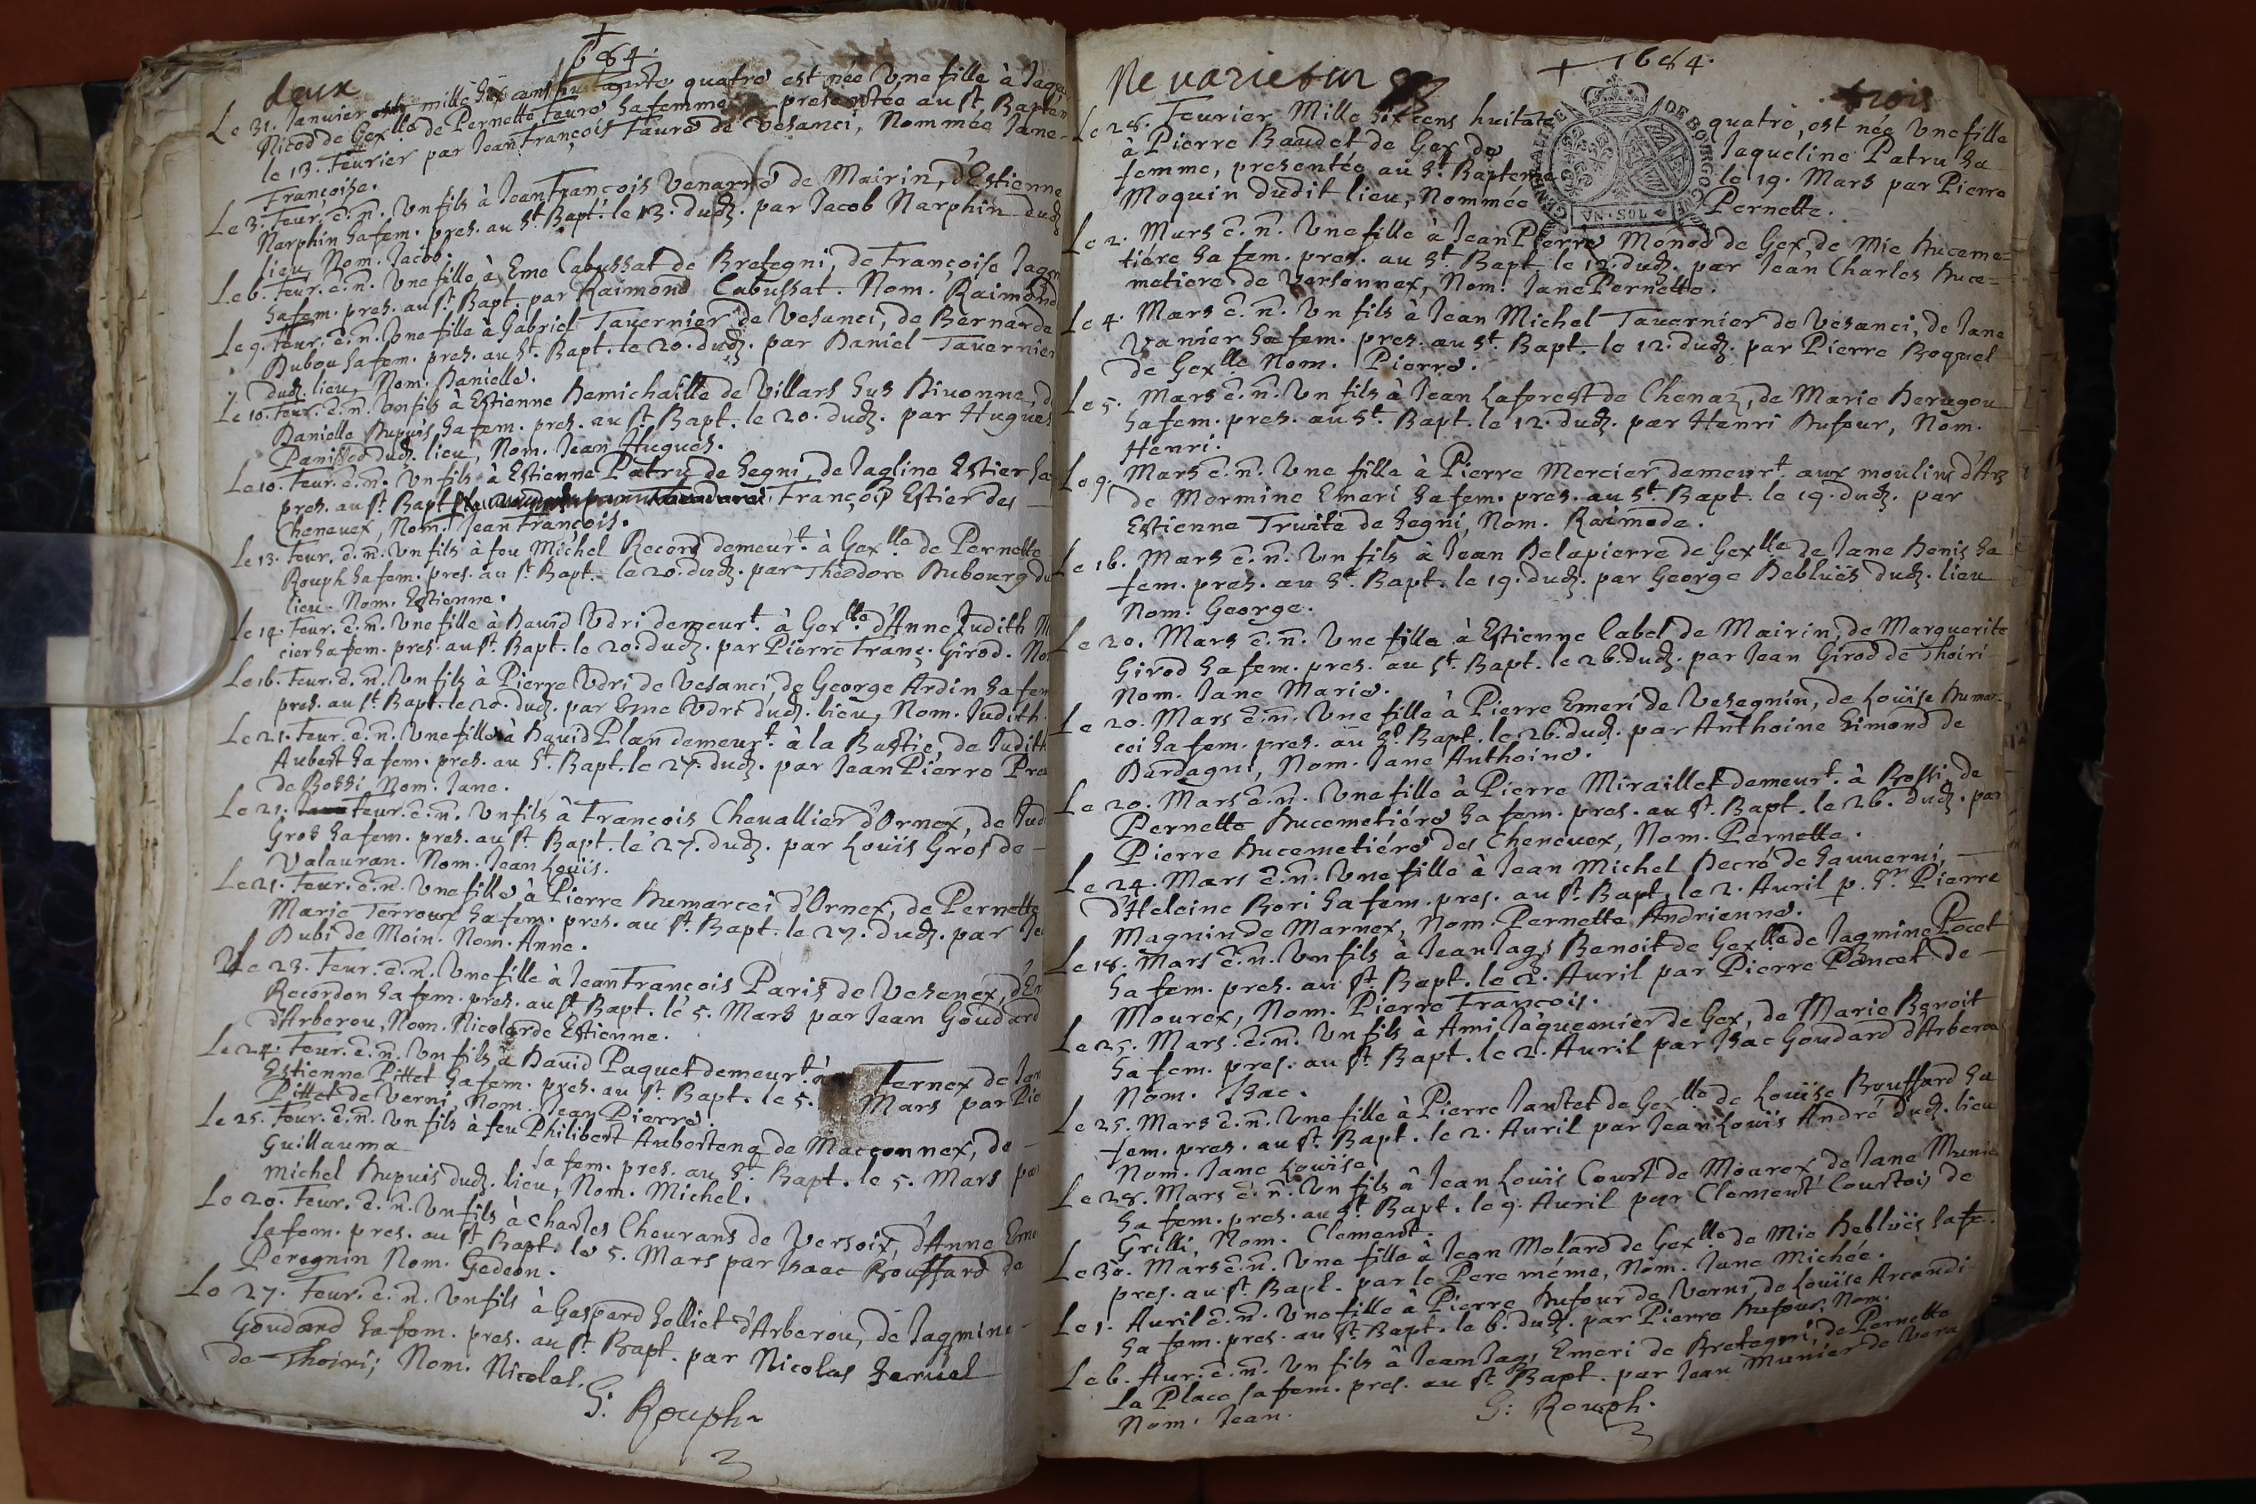 deux
1684.
Le 31. Janvier mille six cens huitante quatre est née Une fille à Jaques
Nicod de Gex.lle de Pernette Faure sa femme presentée au St. Baptem
le 13. Feurier par Jean François Faure de Vesanci, Nommée Jane-
Françoise.
Le 3. Feur. e. n. Vn fils à Jean François Venarre de Mairin, d'Estienne
Narphin sa fem. pres. au St. Bapt. le 13. dudz. par Jacob Narphin dudz
lieu, Nom. Jacob.
Le 6. Feur. e. n. Vne fille à Eme Cabussat de Bretegni, de Françoise
sa fem. pres. au St. Bapt. par Raimond Cabussat. Nom. Raimond
Le 9. Feur. e. n. Vne fille à Gabriel Tauernier de Vesanci, de Bernarde
Dubou sa fem. pres. au St. Bapt. le 20. dudz. par Daniel Tauernier
dudz. lieu, Nom. Danielle.
Le 10. Feur. e. n. Vn fils à Estienne Demichaille de Villars sus Diuonne, d
Danielle Dupuis sa fem. pres. au St. Bapt. le 20. dudz. par Hugues
Panissod dudz. lieu, Nom. Jean Hugues.
Le 10. Feur. e. n. Vn fils à Estienne Patru de Segni, de Jaqline Estier sa
pres. au St. Bapt François Estier des
Cheneuex, Nom. Jean François.
Le 13. Feur. e. n. Vn fils à feu Michel Recors demeurt. à Gex.lle de Pernette
Rouph sa fem. pres. au St. Bapt. le 20. dudz. par Theodore Dubourg du
lieu. Nom. Estienne.
Le 14. Feur. e. n. Vne fille à Dauid Vdri demeurt. à Gex.lle d'Anne Judith M
cier sa fem. pres. au St. Bapt. le 20. dudz. par Pierre Franç. Girod. No
Le 16. Feur. e. n. Vn fils à Pierre Vdri de Vesanci, de George Ardin sa fem
pres. au St. Bapt. le 20. dudz. par Eme Vdri dudz. lieu, Nom. Judith.
Le 21. Feur. e. n. Vne fille à Dauid Plan demeurt. à la Bastie, de Judith
Aubert sa fem. pres. au St. Bapt. le 27. dudz. par Jean Pierre Pra
de Bossi, Nom. Jane.
Le 21. Feur. e. n. Vn fils à François Cheuallier d'Ornex, de Jud
Gros sa fem. pres. au St. Bapt. le 27. dudz. par Louïs Gros de
Valauran. Nom. Jean Louïs.
Le 21. Feur. e. n. Vne fille à Pierre Dumarcei d'Ornex, de Pernette
Marie Terroux sa fem. pres. au St. Bapt. le 27. dudz. par Je
Dubi de Moin. Nom. Anne.
Le 23. Feur. e. n. Vne fille à Jean François Paris de Vesenex, d'Es
Recordon sa fem. pres. au St. Bapt. le 5. Mars par Jean Goudard
d'Arberou, Nom. Nicolarde Estienne.
Le 24. Feur. e. n. Vn fils à Dauid Paquet demeurt. à Fernex de Jan
Estienne Pittet sa fem. pres. au St. Bapt. le 5. Mars par Pie
Pittet de Verni, Nom. Jean Pierre.
Le 25. Feur. e. n. Vn fils à feu Philibert Aubertenq de Macconnex, de
Guillauma sa fem. pres. au St. Bapt. le 5. Mars par
Michel Dupuis dudz. lieu, Nom. Michel.
Le 20. Feur. e. n. Vn fils à Charles Cheurans de Versoix, d'Anne Eme
sa fem. pres. au St. Bapt. le 5. Mars par Isaac Bouffard de
Peregnin Nom. Gedeon.
Le 27. Feur. e. n. Vn fils à Gaspard Solliet d'Arberou, de Jaqmine
Goudard sa fem. pres. au St. Bapt. par Nicolas Seruel
de Thoiri, Nom. Nicolas.
G: Rouph
Ne varietur
1684.
trois
Le 28. Feurier Mille Six cens huitate quatre, est née Vne fille
à Pierre Baudet de Gex de Jaqueline Patru sa
femme, presentée au St. Bapteme le 19. Mars par Pierre
Moquin dudit lieu, Nommée Pernette.
GENERALITÉ DE BOURGOGNE
VN·SOL
Le 2. Mars e. n. Vne fille à Jean Pierre Monod de Gex, de Mie Duceme=
tiere sa fem. pres. au St. Bapt. le 12. dudz. par Jean Charles Duce=
metiere de Versonnex, Nom. Jane Pernette.
Le 4. Mars e. n. Vn fils à Jean Michel Tauernier de Vesanci, de Jane
Vannier sa fem. pres. au St. Bapt. le 12. dudz. par Pierre Boquel
de Gex.lle Nom. Pierre.
Le 5. Mars e. n. Vn fils à Jean Laforest de Chenaz, de Marie Derugou
sa fem. pres. au St. Bapt. le 12. dudz. par Henri Dufour, Nom.
Henri.
Le 9. Mars e. n. Vne fille à Pierre Mercier demeurt. aux moulins d'Ars
de Mermine Emeri sa fem. pres. au St. Bapt. le 19. dudz. par
Estienne Truite de Segni, Nom. Raimode.
Le 16. Mars e. n. Vn fils à Jean Delapierre de Gex.lle de Jane Denis sa
fem. pres. au St. Bapt. le 19. dudz. par George Debluës dudz. lieu
Nom. George.
Le 20. Mars e. n. Vne fille à Estienne Cabel de Mairin, de Marguerite
Girod sa fem. pres. au St. Bapt. le 26. dudz. par Jean Girod de Thoiri
Nom. Jane Marie.
Le 20. Mars e. n. Vne fille à Pierre Emeri de Vesegnin, de Louïse Dumar-
cei sa fem. pres. au St. Bapt. le 26. dudz. par Anthoine Simond de
Dardagni, Nom. Jane Anthoine.
Le 20. Mars e. n. Vne fille à Pierre Miraillet demeurt. à Bossi, de
Pernette Ducemetiére sa fem. pres. au St. Bapt. le 26. dudz. par
Pierre Ducemetiére des Cheneuex, Nom. Pernette.
Le 24. Mars e. n. Vne fille à Jean Michel Decré de Sauuerni,
d'Heleine Bori sa fem. pres. au St. Bapt. le 2. Auril p. Sr. Pierre
Magnin de Marnex, Nom. Pernette Andrienne.
Le 18. Mars e. n. Vn fils à Jean Jaqs Benoit de Gex.lle de Jaqmine Pocet
sa fem. pres. au St. Bapt. le 2. Auril par Pierre Poncet de
Mourex, Nom. Pierre François.
Le 25. Mars. e. n. Vn fils à Ami Jaquemier de Gex, de Marie Benoit
sa fem. pres. au St. Bapt. le 2. Auril par Isac Goudard d'Arberou
Nom. Isac.
Le 25. Mars e. n. Vne fille à Pierre Jantet de Gex.lle de Louïse Bouffard sa
fem. pres. au St. Bapt. le 2. Auril par Jean Louïs André dudz. lieu
Nom. Jane Louïse.
Le 28. Mars e. n. Vn fils à Jean Louïs Court de Mourex de Jane Munie
sa fem. pres. au St. Bapt. le 9. Auril par Clement Courtois de
Grilli, Nom. Clement.
Le 30. Mars e. n. Vne fille à Jean Molard de Gex.lle de Mie Debluës sa fe.
pres. au St. Bapt. par le Pere méme, Nom. Jane Michée.
Le 1. Auril e. n. Vne fille à Pierre Dufour de Verni, de Louïse Arcandi
sa fem. pres. au St. Bapt. le 6. dudz. par Pierre Dufour. Nom.
Le 6. Aur. e. n. Vn fils à Jean Jaqs Emeri de Bretegni, de Pernette
La Place sa fem. pres. au St. Bapt. par Jean Munier de Vera
Nom. Jean.
G: Rouph.